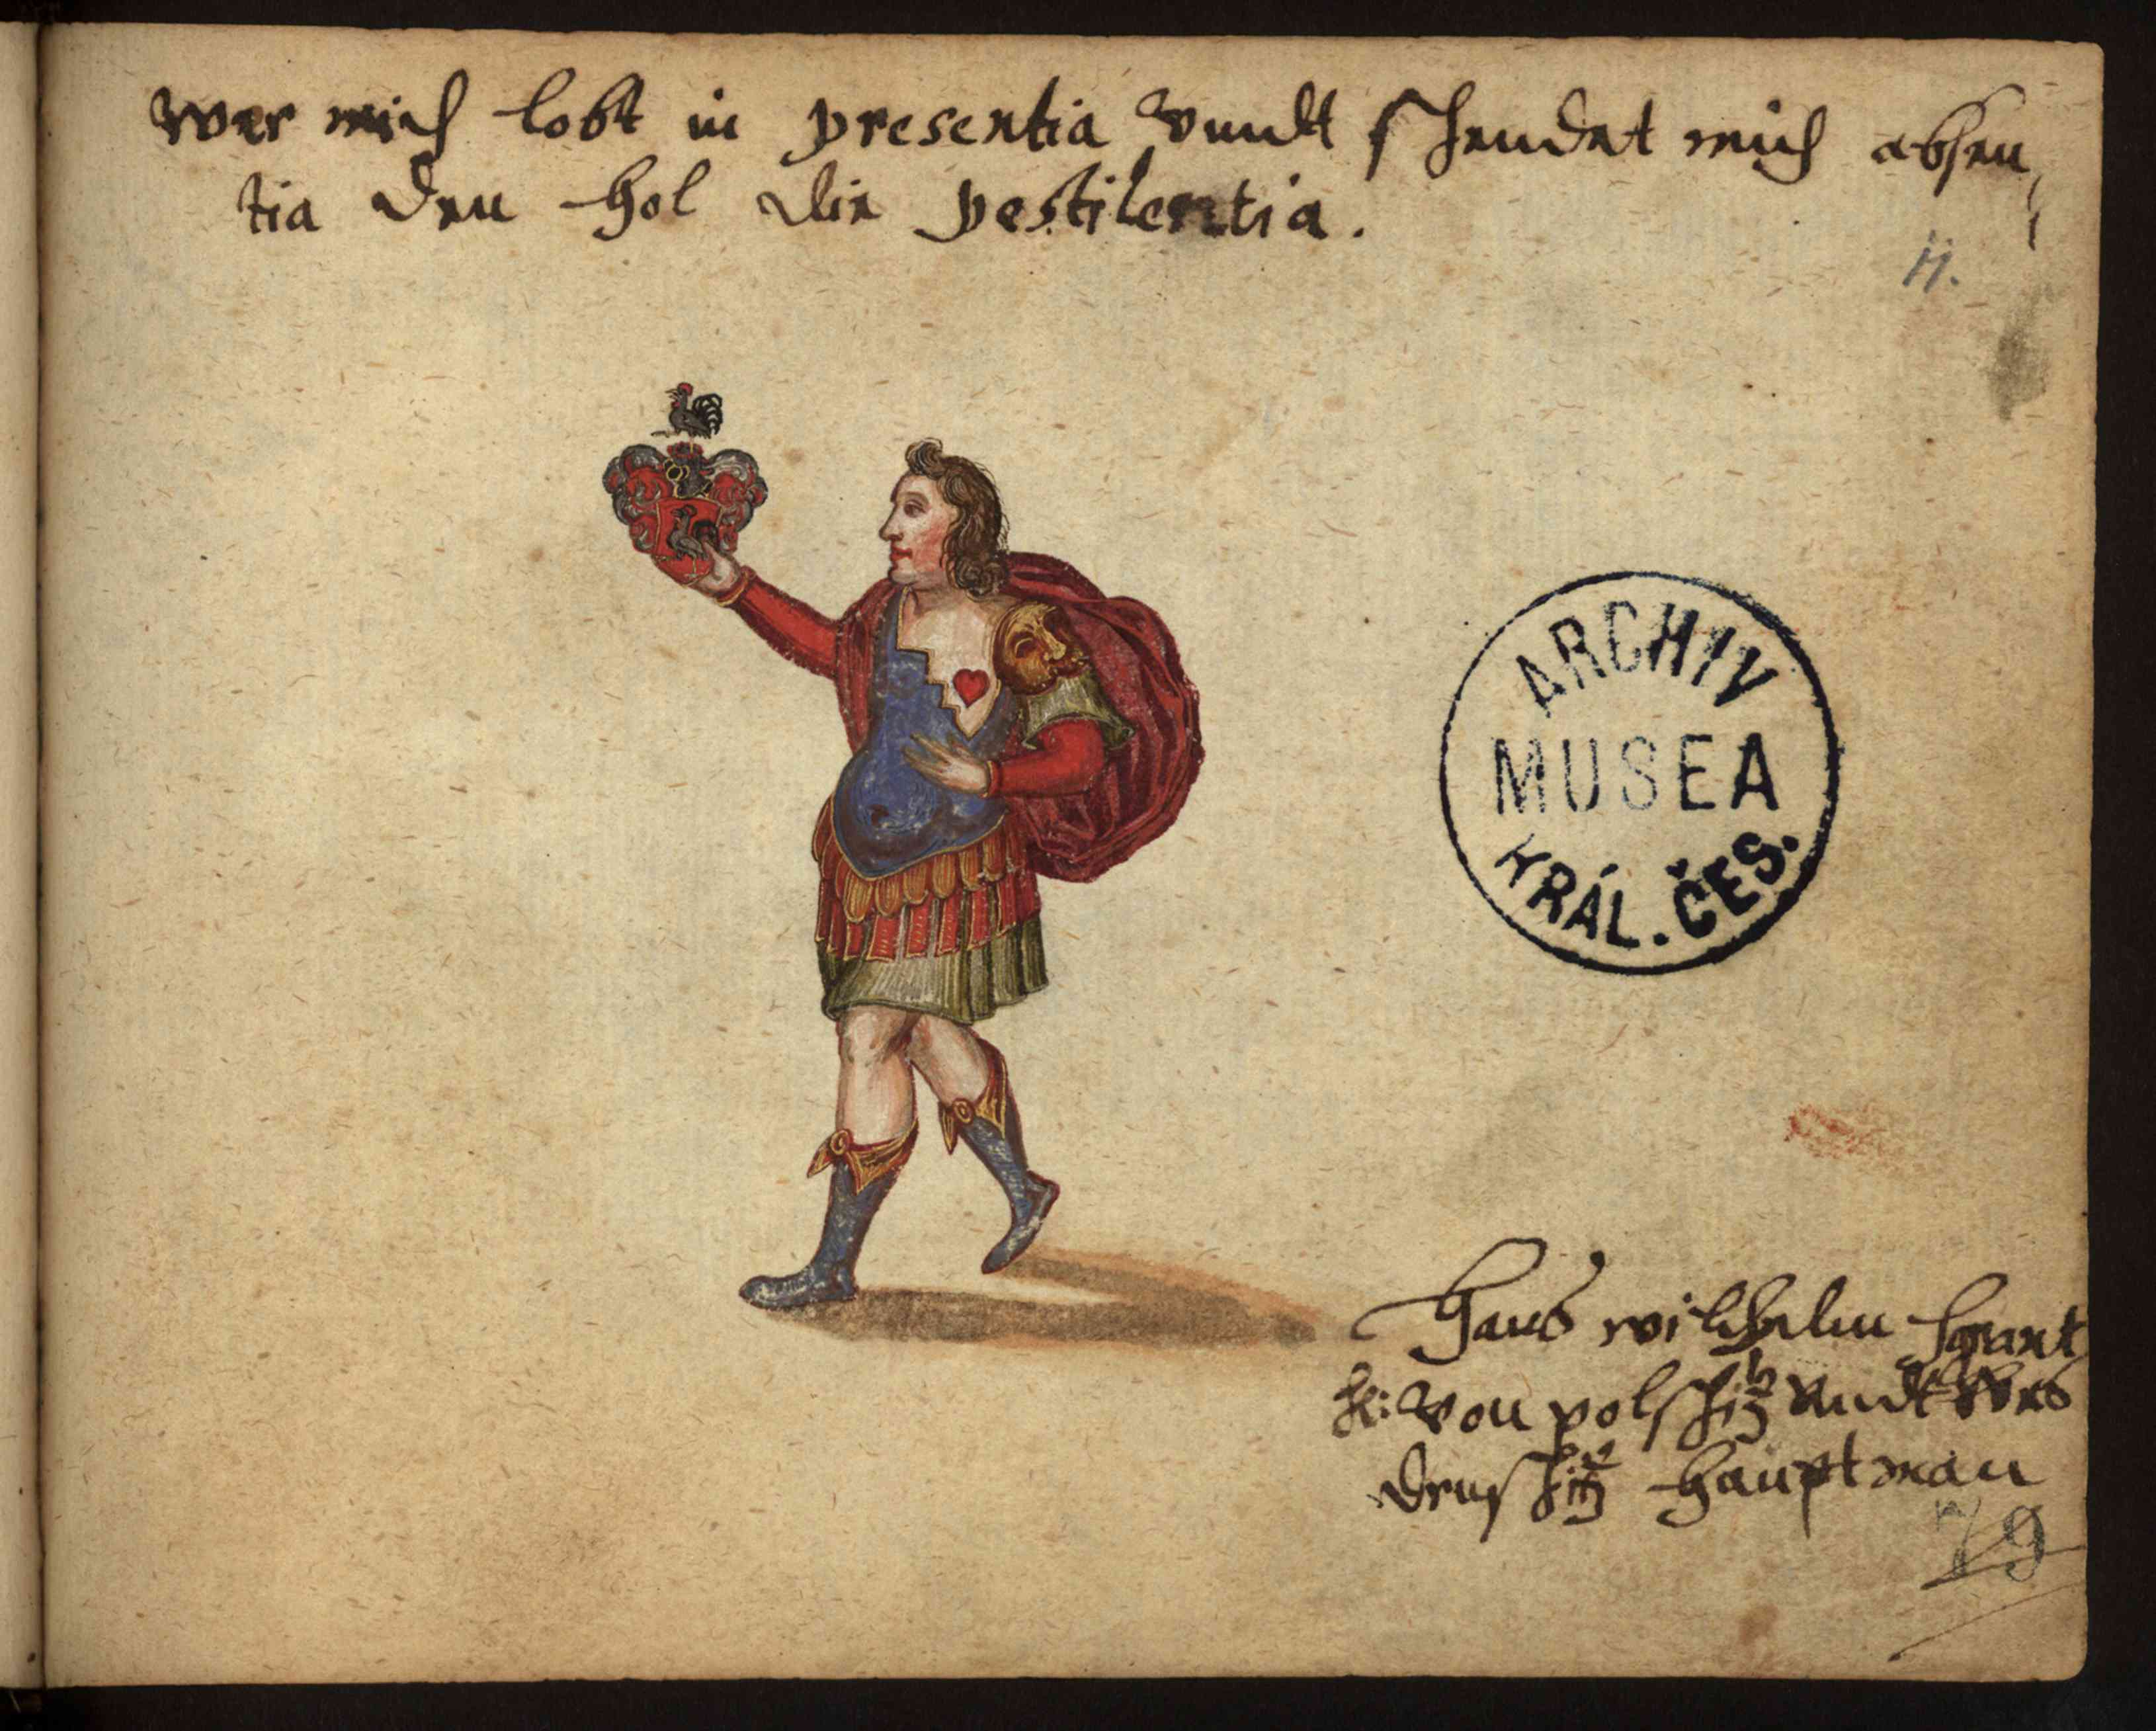 wer mich lobt in presentia vundt schendet mich absen
tia den hol die pestilentia.
11.
ARCHIV
MUSEA
KRÁL. ČES.
Hans wilhelm
von polschitz vndt Wes
druschitz hauptman
79